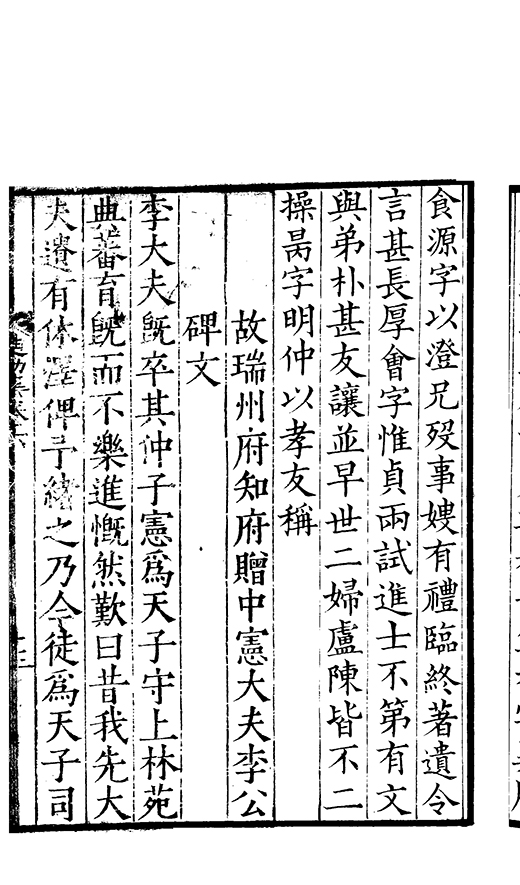 食源字以澄兄歿事嫂有禮臨終著遺令
言甚長厚會字惟貞兩試進士不第有文
與弟朴甚友讓並早世二婦盧陳皆不二
操昺字明仲以孝友稱
故瑞州府知府贈中憲大夫李公
碑文
李大夫旣卒其仲子憲爲天子守上林苑
典蕃育旣而不樂進慨然歎曰昔我先大
夫遺有休澤俾于緒之乃今徒爲天子司